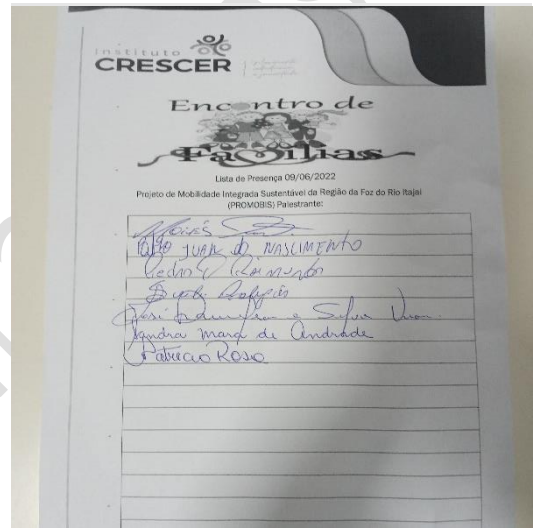 Instituto
CRESCER
Encontro de
Famílias
Lista de Presença 09/06/2022
Projeto de Mobilidade Integrada Sustentável da Região da Foz do Rio Itajaí
(PROMOBIS) Palestrante:
Moisés
JUAN do NASCIMENTO
Pedro Raimundo
José Silva
Sandra Mara de Andrade
Patrícia Rosa